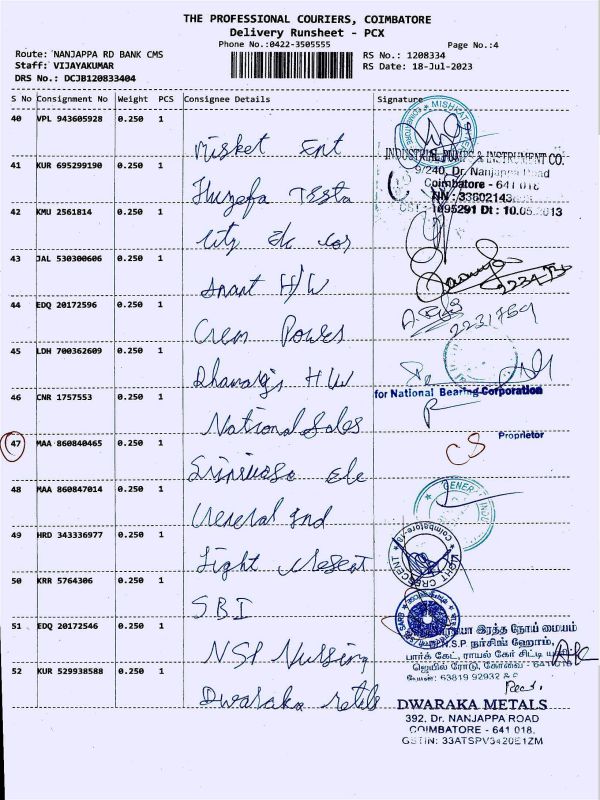 THE PROFESSIONAL COURIERS, COIMBATORE
Delivery Runsheet - PCX
Phone No.:0422-3505555 Page No.:4
Route: NANJAPPA RD BANK CMS RS No.: 1208334
Staff: VIJAYAKUMAR RS Date: 18-Jul-2023
DRS No.: DCJB120833404
S No Consignment No Weight PCS Consignee Details Signature
40 VPL 943605928 0.250 1
Misket Ent
MISHKAT
INDUSTRIAL PUMPS & INSTRUMENT CO.
41 KUR 695299190 0.250 1
9/240, Dr. Nanjappa Road
Coimbatore - 641 018
Huzafa
42 KMU 2561814 0.250 1
1095291 Dt : 10.05.2013
City
43 JAL 530300606 0.250 1
Anant H/W
44 EDQ 20172596 0.250 1
2231769
Crem Power
45 LDH 700362609 0.250 1
H W
46 CNR 1757553 0.250 1
for National Bearing Corporation
National Sales
47 MAA 860840465 0.250 1
Proprietor
CS
Srinivasa Ele
48 MAA 860847014 0.250 1
GENERAL INDU
General Ind
49 HRD 343336977 0.250 1
Coimbatore-18
LIGHT CRESCENT
Light Cresent
50 KRR 5764306 0.250 1
SBI
51 EDQ 20172546 0.250 1
இரத்த நோய் மையம்
N.S.P. நர்சிங் ஹோம்,
பார்க் கேட், ராயல் கேர் சிட்டி
NSP Nursing
ஜெயில் ரோடு, கோவை - 641018
52 KUR 529938588 0.250 1
63819 92932
Dwaraka
DWARAKA METALS
392, Dr. NANJAPPA ROAD
COIMBATORE - 641 018.
GSTIN: 33ATSPV3420E1ZM